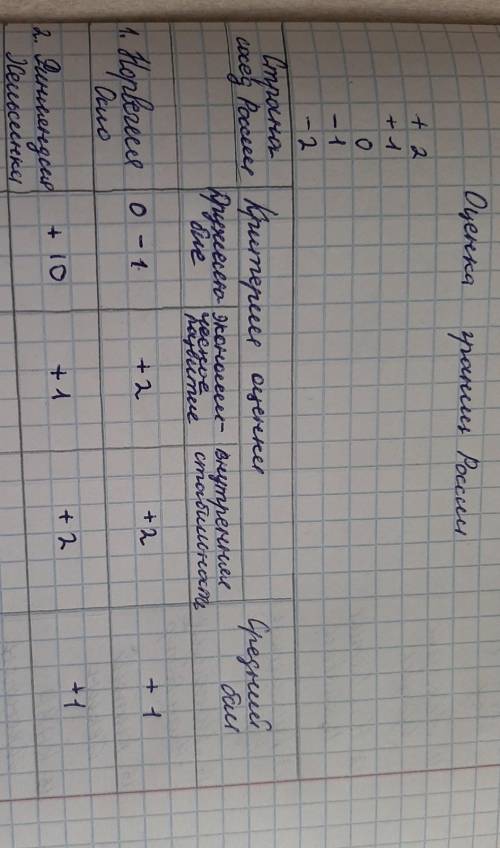 Оценка границ России
+ 2
+ 1
0
- 1
- 2
Страна-
сосед России
Критерии оценки
Средний
бал
Дружелю-
бие
экономи-
ческие
развитие
внутренняя
стабильность
1. Норвегия
Осло
0 - 1
+2
+2
+1
2. Финляндия
Хельсинки
+ 10
+1
+2
+1